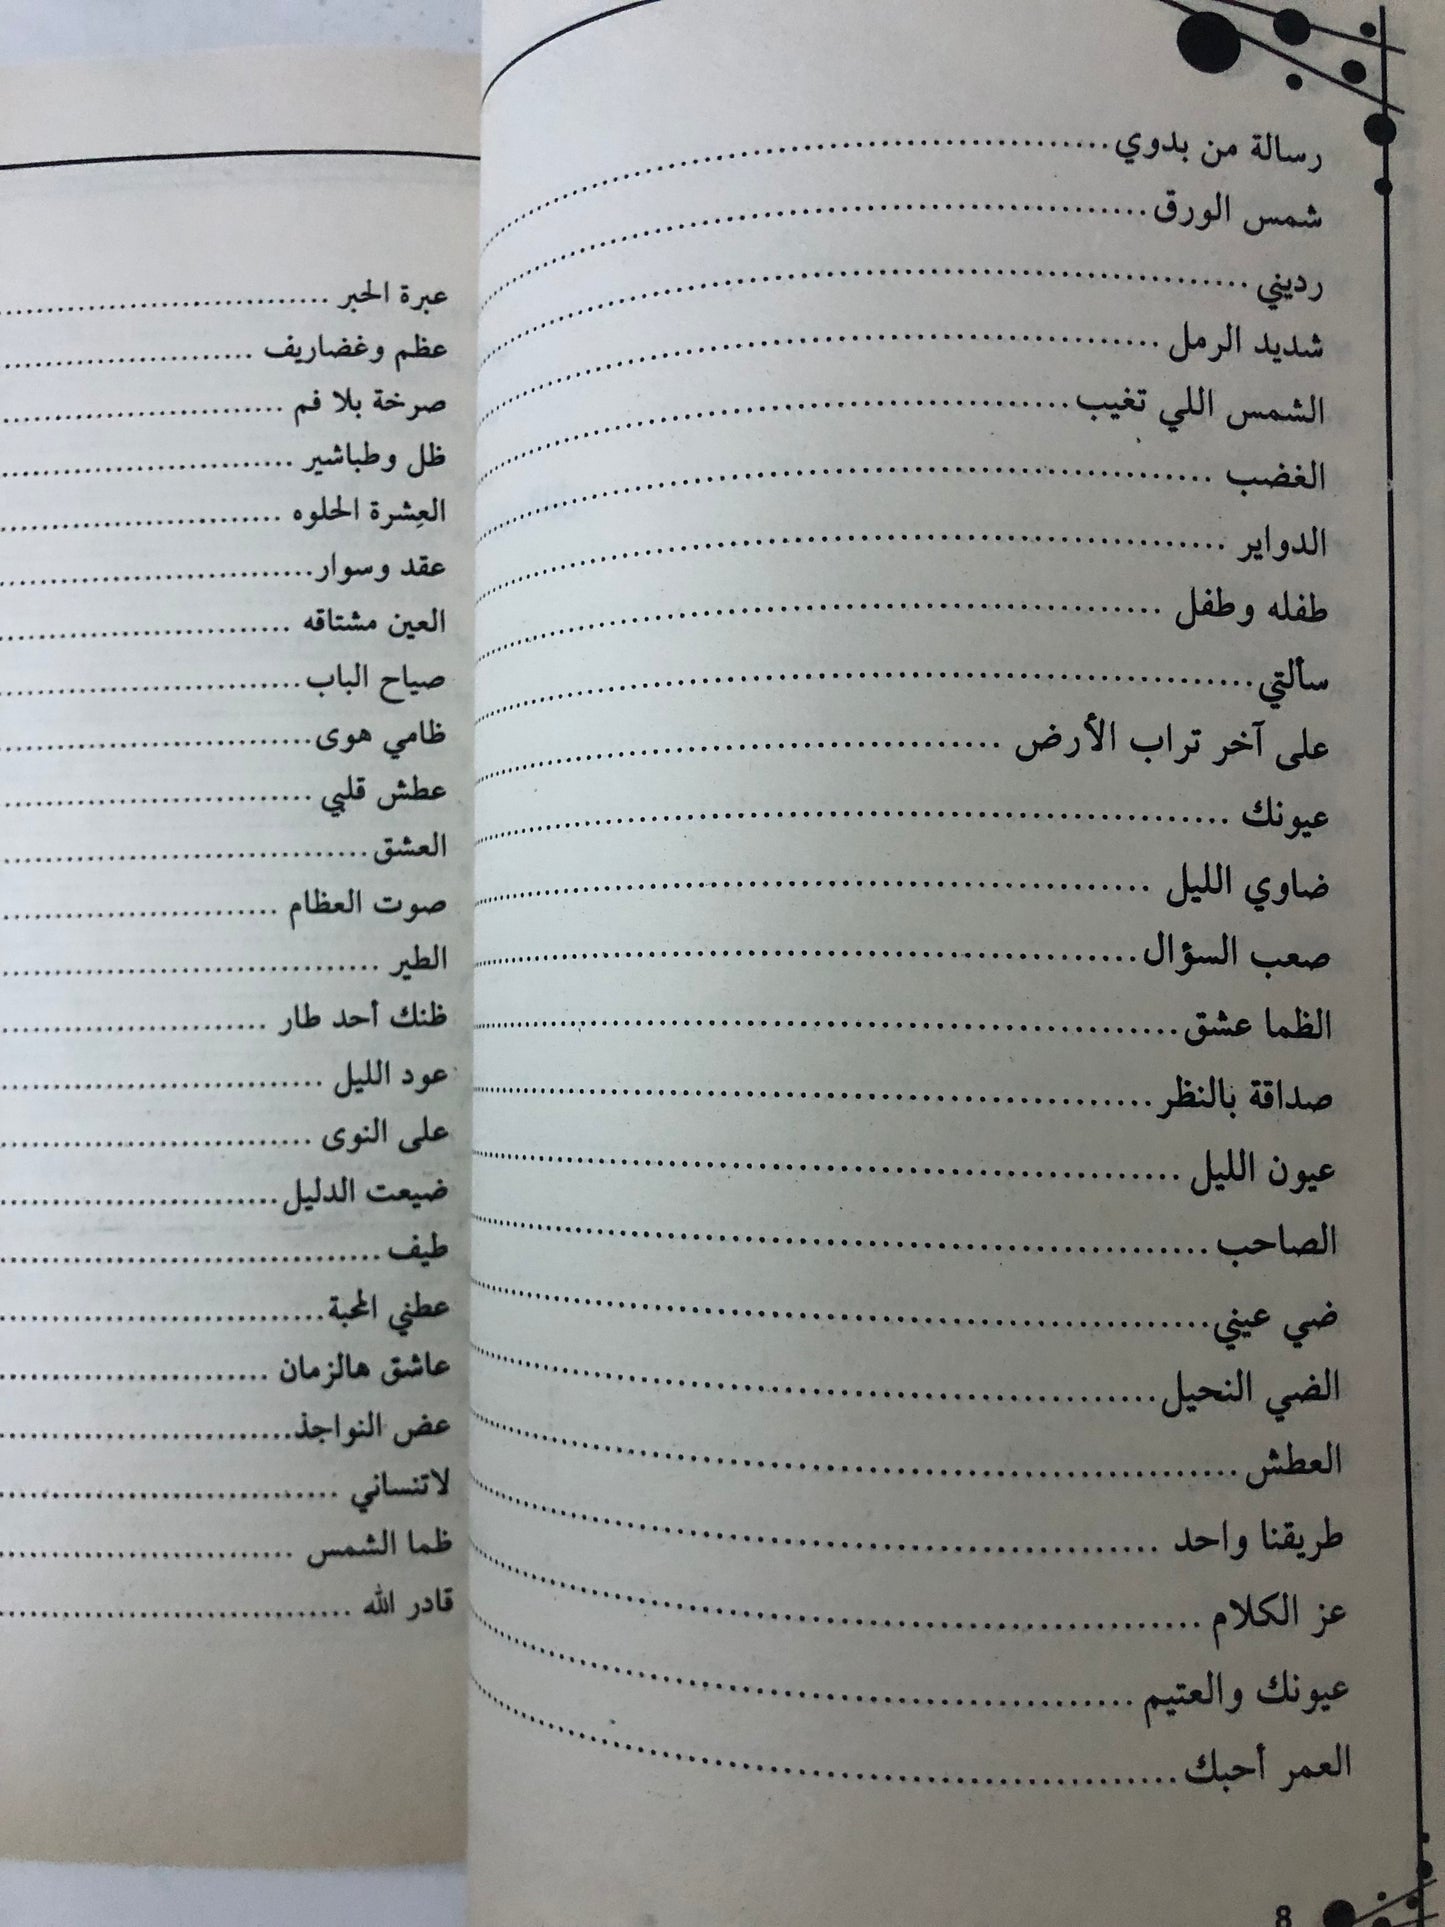 رسالة من بدوي
شمس الورق
رديني
شديد الرمل
الشمس اللي تغيب
الغضب
الدواير
طفله وطفل
سألتي
على آخر تراب الأرض
عيونك
ضاوي الليل
صعب السؤال
الظما عشق
صداقة بالنظر
عيون الليل
الصاحب
ضي عيني
الضي النحيل
العطش
طريقنا واحد
عز الكلام
عيونك والعتيم
العمر أحبك
8
عبرة الحبر
عظم وغضاريف
صرخة بلا فم
ظل وطباشير
العِشرة الحلوه
عقد وسوار
العين مشتاقه
صياح الباب
ظامي هوى
عطش قلبي
العشق
صوت العظام
الطير
ظنك أحد طار
عود الليل
على النوى
ضيعت الدليل
طيف
عطني المحبة
عاشق هالزمان
عض النواجذ
لاتنساني
ظما الشمس
قادر الله